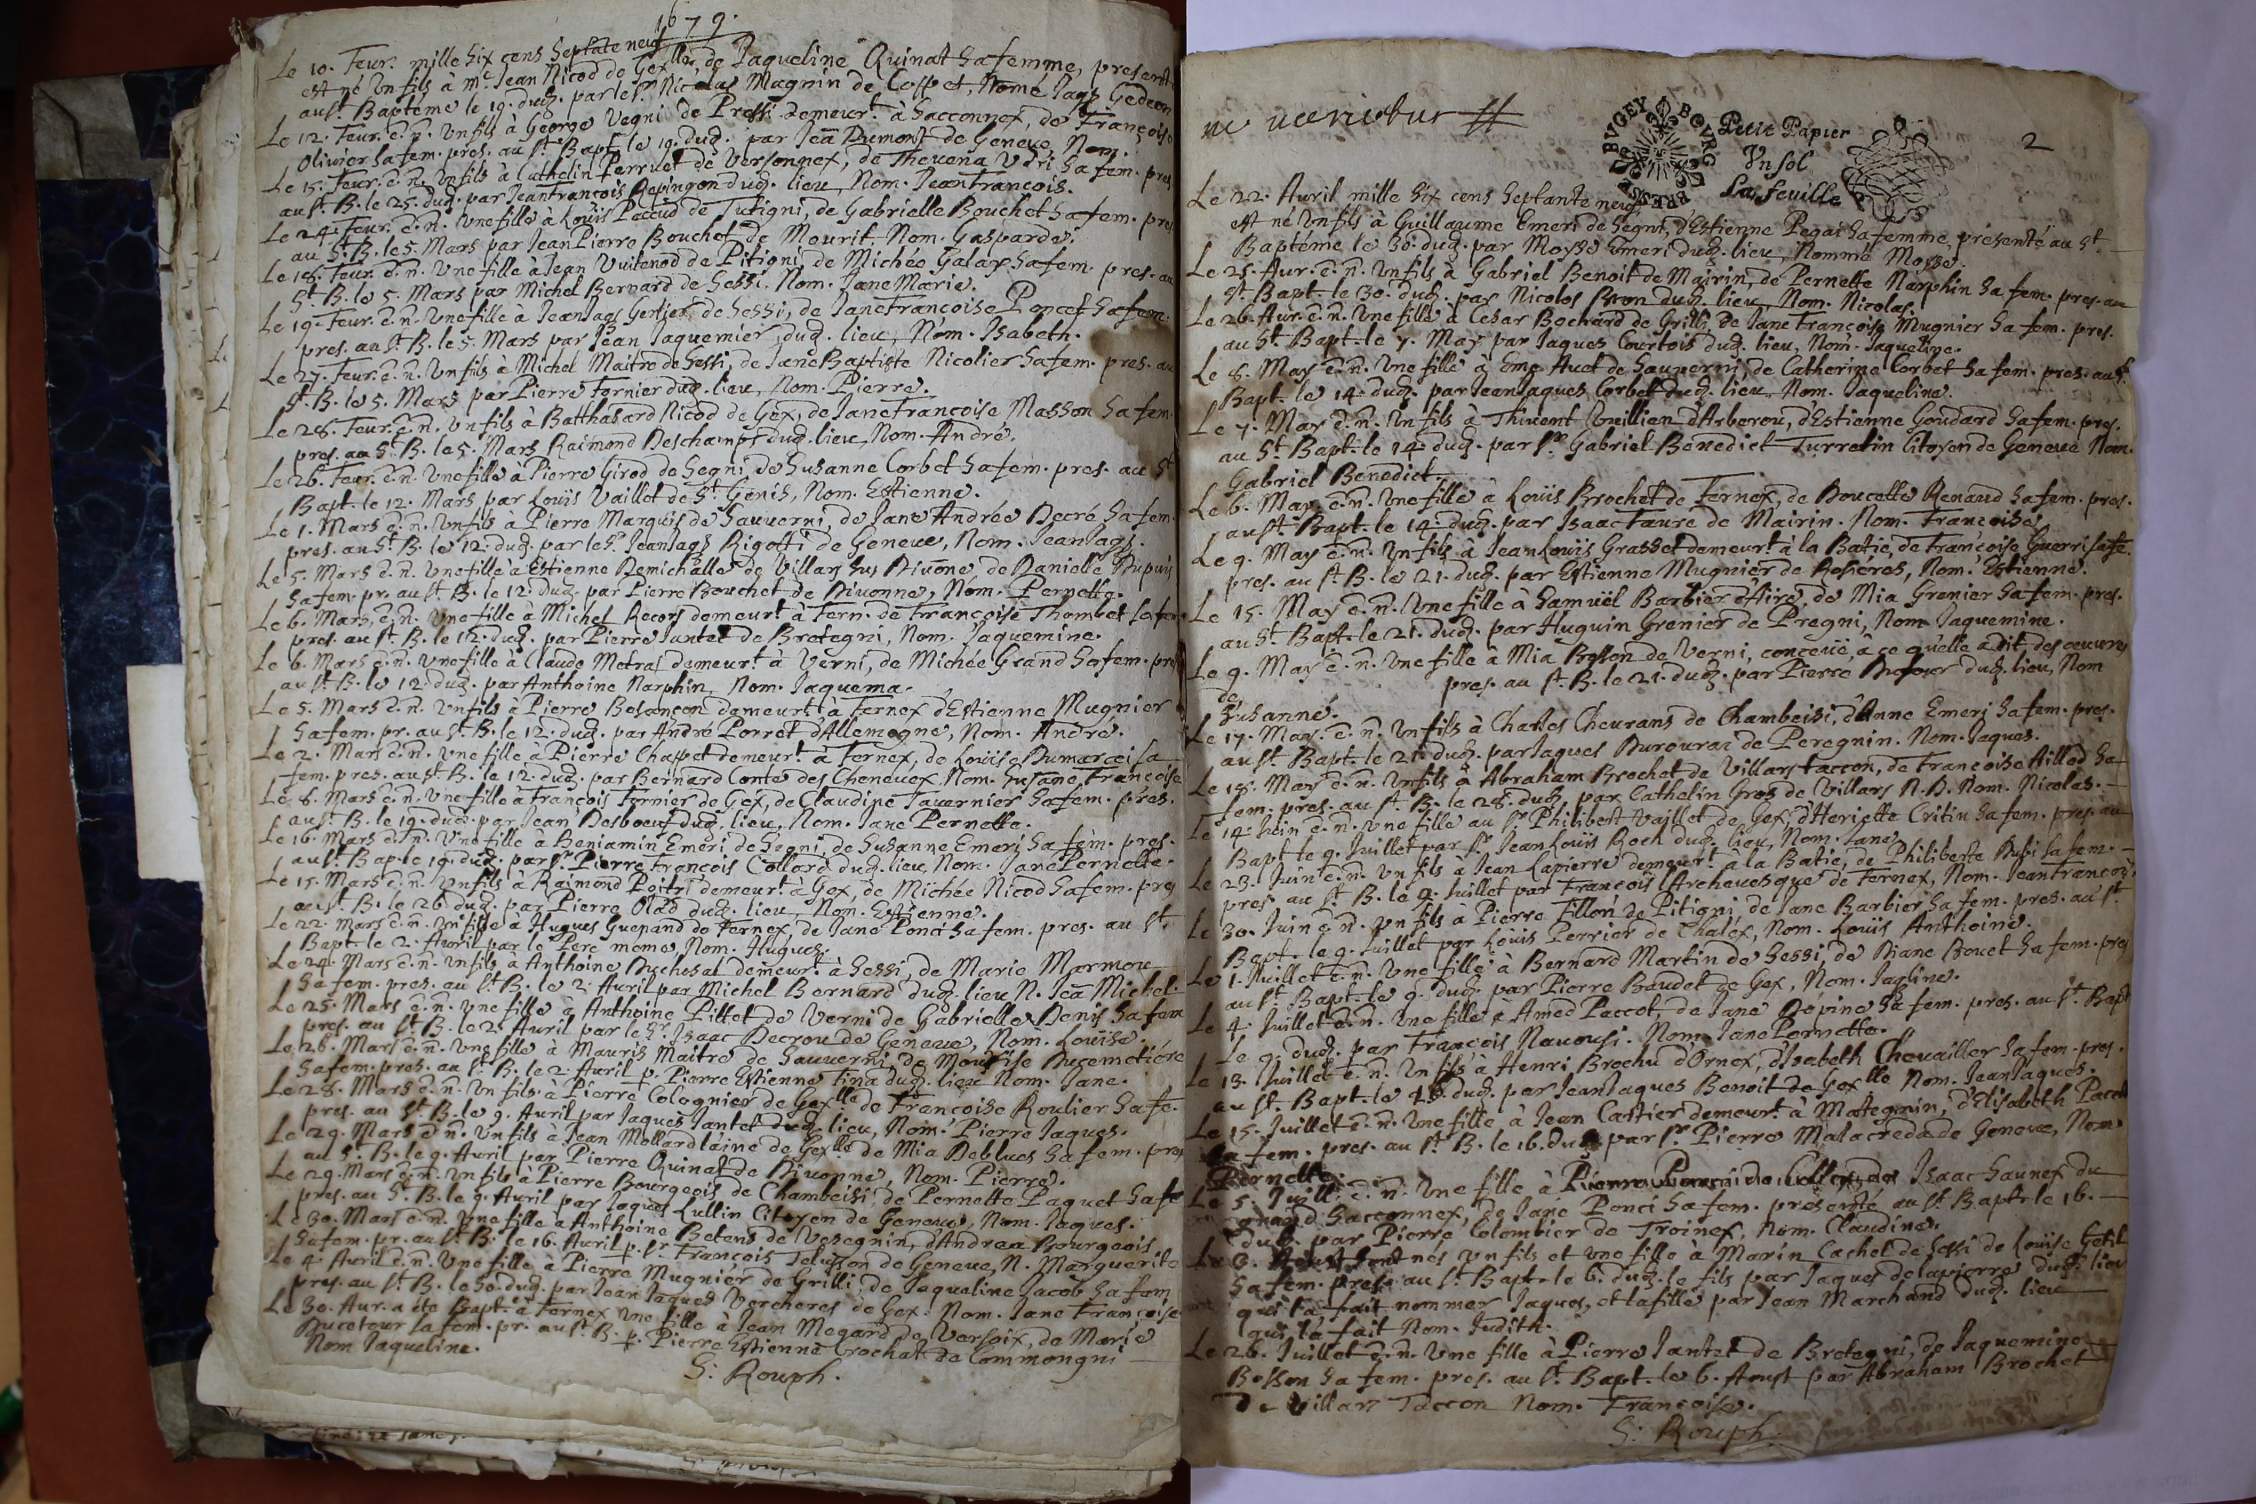 1679.
Le 10. Feur. mille six cens septāte neuf
est né un fils à Mᵉ. Jean Nicod de Gex lle, de Jaqueline Quinat sa femme, presenté
au St. Bapteme le 19. dud. par le Sr. Nicolas Magnin de Copp et, Nomé Jaqs Gedeon
Le 12. Feur. e. n. un fils à George Vegni de Pressi demeurt. à Sacconnex, de Françoise
Olivier sa fem. pres. au St. Bapt. le 19. dud. par Jeā Dumont de Geneve, Nom.
Le 15. Feur. e. n. un fils à Cathelin Perruet de Versonnex, de Thevena sa fem. pres.
au St. B. le 25. dud. par Jean François Repingon dud. lieu, Nom. Jean François.
Le 24. Feur. e. n. une fille à Loüis Paccud de Tutigni, de Gabrielle Bouchet sa fem. pres.
au St. B. le 5. Mars par Jean Pierre Bouchet de Mourit. Nom. Gasparde.
Le 18. Feur. e. n. une fille à Jean Vuitenod de Pitigni, de Michée Galay sa fem. pres. au
St. B. le 5. Mars par Michel Bernard de Sessi. Nom. Jane Marie.
Le 19. Feur. e. n. une fille à Jean Jaqs Gertier de Sessi, de Jane Françoise Poncet sa fem.
pres. au St. B. le 5. Mars par Jean Jaquemier, dud. lieu, Nom. Isabeth.
Le 27. Feur. e. n. un fils à Michel Maitre de Sessi, de Jane Baptiste Nicolier sa fem. pres. au
St. B. le 5. Mars par Pierre Fornier dud. lieu, Nom. Pierre.
Le 28. Feur. e. n. un fils à Batthasard Nicod de Gex, de Jane Françoise Masson sa fem.
pres. au St. B. le 5. Mars Raimond Deschamps dud. lieu, Nom. André.
Le 26. Feur. e. n. une fille à Pierre Girod de Segni, de Susanne Corbet sa fem. pres. au St.
Bapt. le 12. Mars par Loüis Vaillet de St. Genis, Nom. Estienne.
Le 1. Mars e. n. un fils à Pierre Marquis de Sauverni, de Jane Andrée Decré sa fem.
pres. au St. B. le 12. dud. par le Sr. Jean Jaqs Rigotti de Geneve, Nom. Jean Jaqs.
Le 5. Mars e. n. une fille à Estienne Demichalle de Villar sus Divone, de Danielle Dupuis
sa fem. pr. au St. B. le 12. dud. par Pierre Bouchet de Divonne, Nom. Pernette.
Le 6. Mars e. n. une fille à Michel Recors demeurt. à Fern. de Françoise Thombet sa fem.
pres. au St. B. le 12. dud. par Pierre Jantet de Bretegni, Nom. Jaquemine.
Le 6. Mars e. n. une fille à Claude Metral demeurt. à Verni, de Michée Grand sa fem. pres.
au St. B. le 12. dud. par Anthoine Narphin, Nom. Jaquema.
Le 5. Mars e. n. un fils à Pierre Besançon demeurt. à Fernex d'Estienne Mugnier
sa fem. pr. au St. B. le 12. dud. par André Porret d'Allemogne, Nom. André.
Le 2. Mars e. n. une fille à Pierre Chappet demeurt. à Fernex, de Loüise Dumarcei sa
fem. pres. au St. B. le 12. dud. par Bernard Conte des Cheneuex. Nom. Susane Françoise
Le 8. Mars e. n. une fille à François Fornier de Gex, de Claudine Tavernier sa fem. pres.
au St. B. le 19. dud. par Jean Desboeuf dud. lieu, Nom. Jane Pernette.
Le 16. Mars e. n. une fille à Beniamin Emeri de Segni, de Susanne Emeri sa fem. pres.
au St. Bap. le 19. dud. par Sr. Pierre François Collard dud. lieu, Nom. Jane Pernette.
Le 15. Mars e. n. un fils à Raimond Poitri demeurt. à Gex, de Michée Nicod sa fem. pres
au St. B. le 26 dud. par Pierre Olad dud. lieu, Nom. Estienne.
Le 22. Mars e. n. un fils à Hugues Guepand de Fernex, de Jane Ponci sa fem. pres. au St.
Bapt. le 2. Avril par le Pere meme, Nom. Hugues.
Le 24. Mars e. n. un fils à Anthoine Duchesal demeurt. à Sessi, de Marie Mormou
sa fem. pres. au St. B. le 2. Avril par Michel Bernard dud. lieu N. Jeā Michel.
Le 25. Mars e. n. une fille à Anthoine Pittet de Verni de Gabrielle Denis sa fem
pres. au St. B. le 2. Avril par le Sr. Isaac Decrou de Geneve, Nom. Loüise.
Le 26. Mars e. n. une fille à Mauris Maitre de Sauverni de Mourise Ducemetiére
sa fem. pres. au St. B. le 2. Avril p. Pierre Estienne Tina dud. lieu Nom. Jane.
Le 28. Mars e. n. un fils à Pierre Colognier de Gex lle de Françoise Roulier sa fe.
pres. au St. B. le 9. Avril par Jaques Jantet dud. lieu, Nom. Pierre Jaques.
Le 29. Mars e. n. un fils à Jean Mollard laine de Gex lle de Mia Deblues sa fem. pres
au S. B. le 9. Avril par Pierre Quinat de Divonne, Nom. Pierre.
Le 29. Mars e. n. un fils à Pierre Bourgeois de Chambeisi, de Pernette Paquet sa fe
pres. au St. B. le 9. Avril par Jaques Lullin Citoyen de Geneve, Nom. Jaques.
Le 30. Mars e. n. une fille à Anthoine Betens de Vesegnin, d'Andrea Bourgeois
sa fem. pr. au St. B. le 16. Avril p. Sr. François Telusson de Geneve, N. Marguerite
Le 4. Avril e. n. une fille à Pierre Mugnier de Grilli, de Jaqueline Jacob sa fem
pres. au St. B. le 30. dud. par Jean Jaques Vercheres de Gex. Nom. Jane Françoise
Le 30. Avr. a été Bapt. à Fernex une fille à Jean Megard de Versoix, de Marie
Ducetour sa fem. pr. au St. B. p. Pierre Estienne Crochat de Commongni
Nom Jaqueline.
S. Rouph.
ne varietur
BVGEY BOVRG BRESSE
Petit Papier
Vn sol
La feuille
2
Le 22. Avril mille six cens septante neuf
est né un fils à Guillaume Emeri de Segni, d'Estienne Pegai sa femme, presenté au St.
Bapteme le 30. dud. par Moyse Emeri dud. lieu, Nommé Moyse.
Le 25. Avr. e. n. un fils à Gabriel Benoit de Mairin, de Pernette Narphin sa fem. pres. au
St. Bapt. le 30. dud. par Nicolas Bron dud. lieu, Nom. Nicolas.
Le 26. Avr. e. n. une fille à Cesar Bochard de Grilli, de Jane Françoise Mugnier sa fem. pres.
au St. Bapt. le 7. May par Jaques Courtois dud. lieu, Nom. Jaqueline.
Le 8. May e. n. une fille à Eme Auet de Sauverni, de Catherine Corbet sa fem. pres. au St.
Bapt. le 14. dud. par Jean Jaques Corbet dud. lieu, Nom. Jaqueline.
Le 7. May e. n. un fils à Thivent Vuillien d'Arberou, d'Estienne Goudard sa fem. pres.
au St. Bapt. le 14. dud. par Sr. Gabriel Benedict Turretin Citoyen de Geneve Nom.
Gabriel Benedict.
Le 6. May e. n. une fille à Loüis Brochet de Fernex, de Doucette Renaud sa fem. pres.
au St. Bapt. le 14. dud. par Isaac Faure de Mairin. Nom. Françoise
Le 9. May e. n. un fils à Jean Loüis Grasset demeurt. à la Batie, de Françoise Guerri sa fe.
pres. au St. B. le 21. dud. par Estienne Mugnier de Rosieres, Nom. Estienne.
Le 15. May e. n. une fille à Samuël Barbier d'Aire, de Mia Grenier sa fem. pres.
au St. Bapt. le 21. dud. par Huguin Grenier de Pregni, Nom Jaquemine.
Le 9. May e. n. une fille à Mia Bosson de Verni, conceüe, à ce qu'elle a dit, des oeuvres
de pres. au St. B. le 21. dud. par Pierre Dufour dud. lieu, Nom
Susanne.
Le 17. May. e. n. un fils à Charles Cheurans de Chambeisi, d'Anne Emeri sa fem. pres.
au St. Bapt. le 21. dud. par Jaques Durouraz de Peregnin. Nom. Jaques.
Le 18. May e. n. un fils à Abraham Brochet de Villars taccon, de Françoise Aillod sa
fem. pres. au St. B. le 28. dud. par Cathelin Gros de Villars N. D. Nom. Nicolas.
Le 14. Juin e. n. une fille au Sr. Philibert Vaillet de Gex, d'Heriette Critin sa fem. pres. au
Bapt. le 9. Juillet par Sr. Jean Loüis Roch dud. lieu, Nom. Jane
Le 23. Juin e. n. un fils à Jean Lapierre demeurt. à la Batie, de Philiberte Dubi sa fem.
pres. au St. B. le 9. Juillet par François l'Archevesque de Fernex, Nom. Jean François
Le 30. Juin e. n. un fils à Pierre Fillon de Pitigni, de Jane Barbier sa fem. pres. au St.
Bapt. le 9. Juillet par Loüis Perrier de Chalex, Nom. Loüis Anthoine.
Le 1. Juillet e. n. une fille à Bernard Martin de Sessi, de Diane Bouet sa fem. pres
au St. Bapt. le 9. dud. par Pierre Baudet de Gex, Nom. Jaqline.
Le 4. Juillet e. n. une fille à Amed Paccot, de Jane Dépine sa fem. pres. au St. Bapt
le 9. dud. par François Navousi. Nom. Jane Pernette.
Le 13. Juillet e. n. un fils à Henri Brochu d'Ornex, d'Isabeth Chevallier sa fem. pres.
au St. Bapt. le dud. par Jean Jaques Benoit de Gex lle Nom. Jean Jaques.
Le 15. Juillet e. n. une fille, à Jean Cartier demeurt. à Mategnin, d'Elisabeth Paccot
sa fem. pres. au St. B. le 16. dud. par Sr. Pierre Malacreda de Geneve, Nom
Pernette.
Le 5. Juill. e. n. une fille à Isaac Saunex du
grand Sacconnex, de Jane Ponci sa fem. presenté au St. Bapt. le 16.
dud. par Pierre Colombier de Troinex, Nom. Claudine.
Le 3. Aoust sont nés un fils et une fille à Marin Cachet de Sessi de Loüise Getil
sa fem. pres. au St. Bapt. le 6. dud. le fils par Jaques delapierre dud. lieu
qui l'a fait nommer Jaques, et la fille par Jean Marchand dud. lieu
qui l'a fait Nom. Judith.
Le 26. Juillet e. n. une fille à Pierre Jantet de Bretegni, de Jaquemine
Bosson sa fem. pres. au St. Bapt. le 6. Aoust par Abraham Brochet
De Villars Taccon Nom. Françoise.
S. Rouph